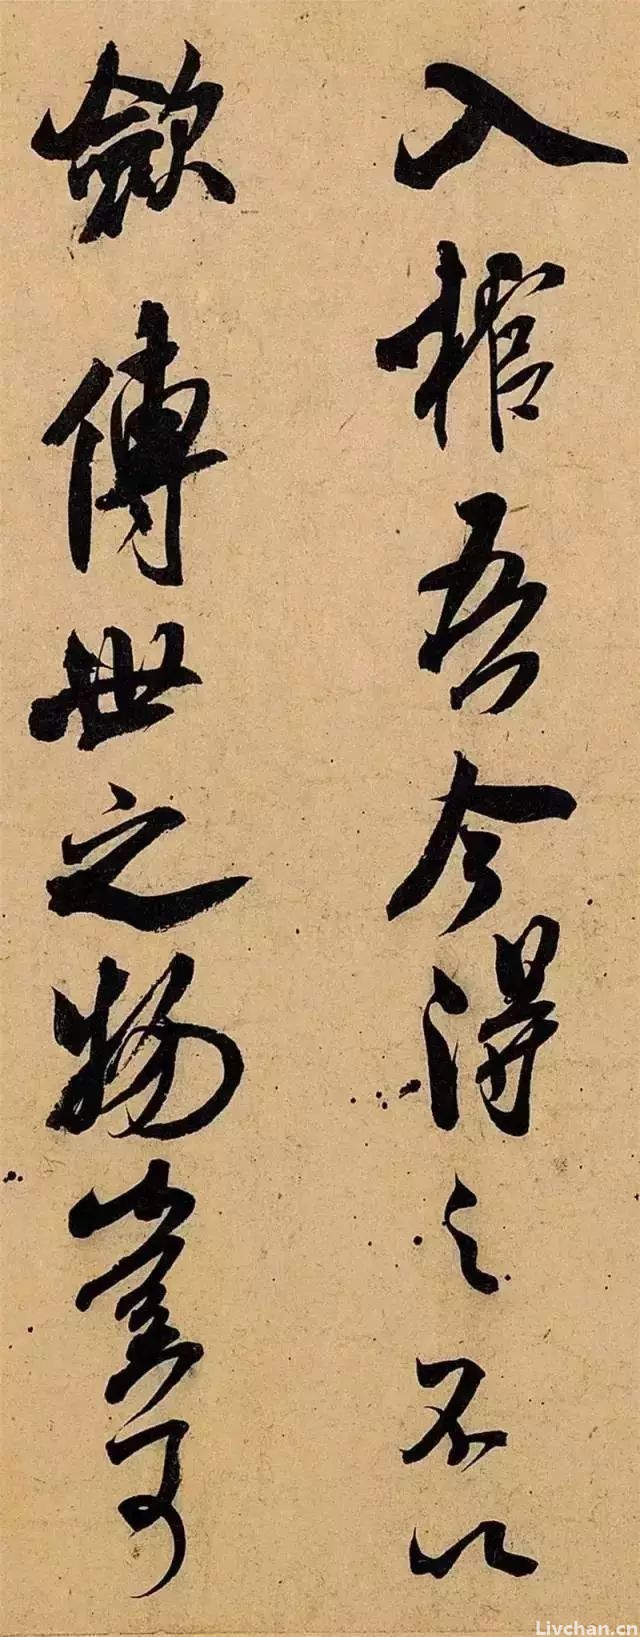 入棺吾今得之不以
歛傳世之物豈可
Livchan.cn